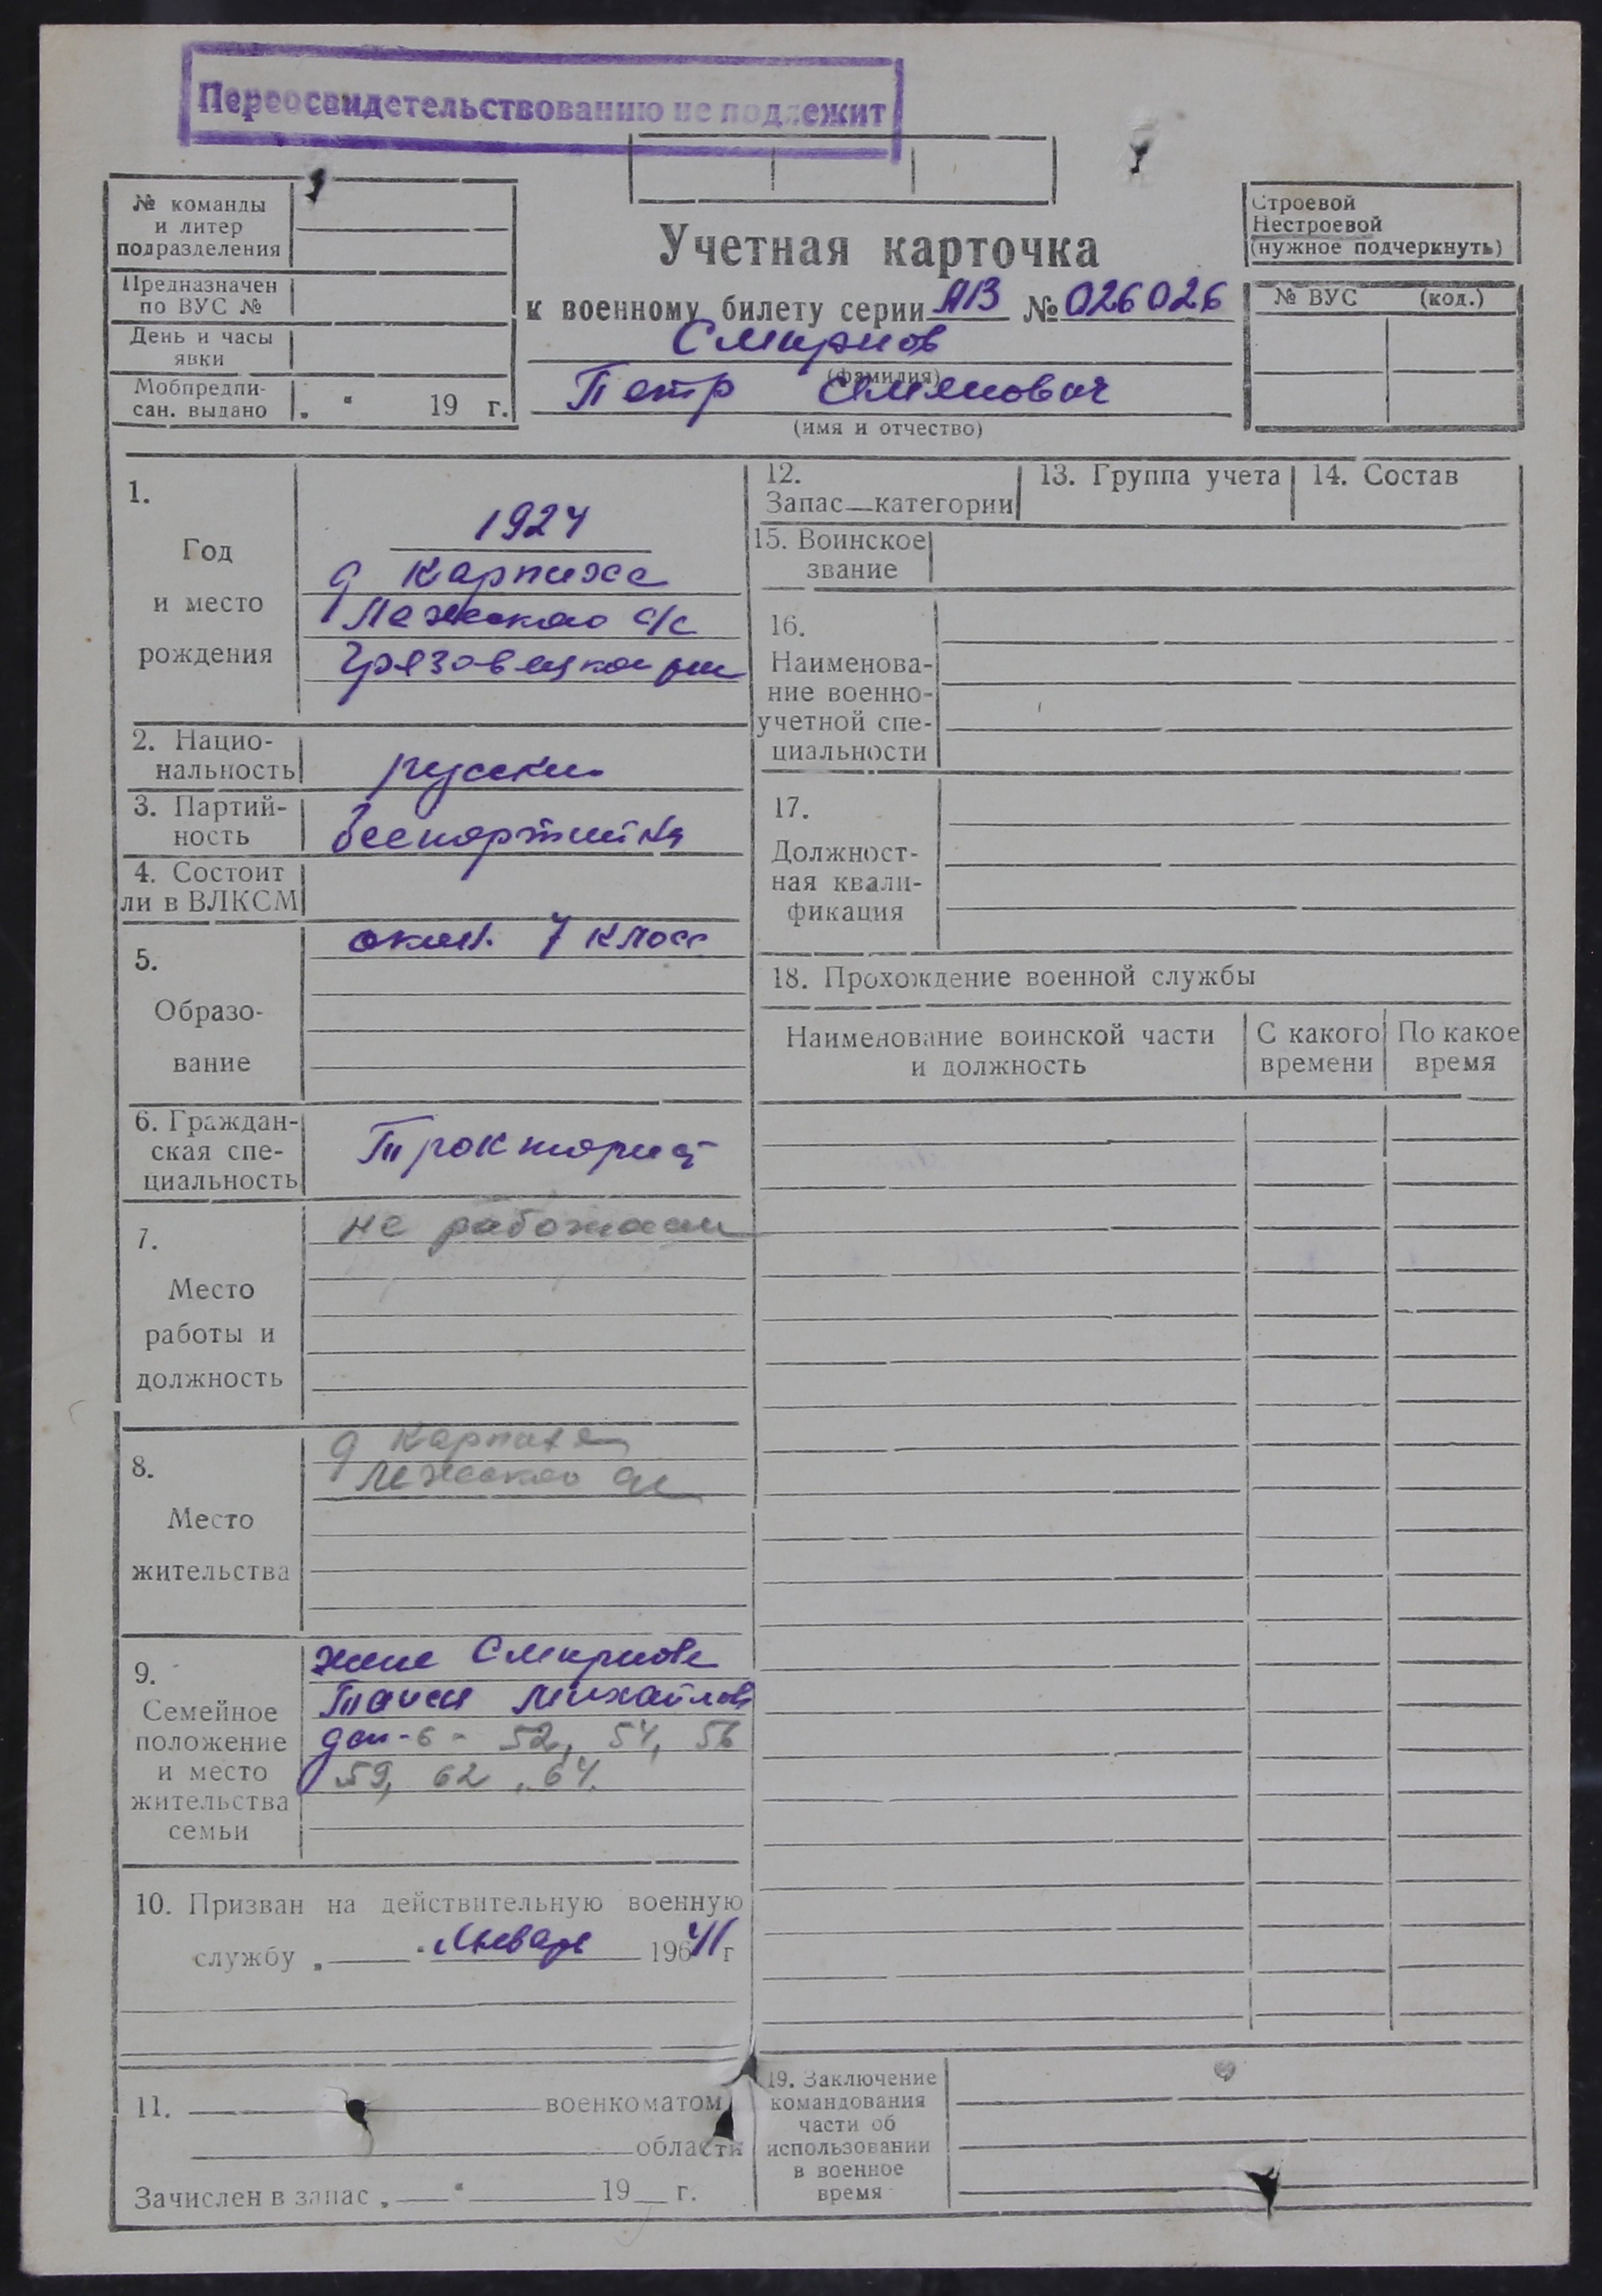 Переосвидетельствованию не подлежит
№ команды
и литер
подразделения
Предназначен
по ВУС №
День и часы
явки
Мобпредпи-
сан. выдано „ “ 19 г.
Строевой
Нестроевой
(нужное подчеркнуть)
№ ВУС (код.)
Учетная карточка
к военному билету серии АВ № 026026
Смирнов
(фамилия)
Петр Семенович
(имя и отчество)
1.
Год
и место
рождения
1924
д Карпиха
Лежского с/с
Грязовецкого
2. Нацио-
нальность
русский
3. Партий-
ность
беспартийн
4. Состоит
ли в ВЛКСМ
5.
Образо-
вание
оконч. 7 класс
6. Граждан-
ская спе-
циальность
Тракторист
7.
Место
работы и
должность
не работает
8.
Место
жительства
д Карпиха
Лежского с/с
9.
Семейное
положение
и место
жительства
семьи
жена Смирнова
Таисия Михайлов
дети-6- 52, 54, 56
59, 62, 64.
10. Призван на действительную военную
службу „ “ Январь 196 41 г
11. военкоматом
области
Зачислен в запас „ “ 19 г.
12.
Запас—категории
13. Группа учета
14. Состав
15. Воинское
звание
16.
Наименова-
ние военно-
учетной спе-
циальности
17.
Должност-
ная квали-
фикация
18. Прохождение военной службы
Наименование воинской части
и должность
С какого
времени
По какое
время
19. Заключение
командования
части об
использовании
в военное
время